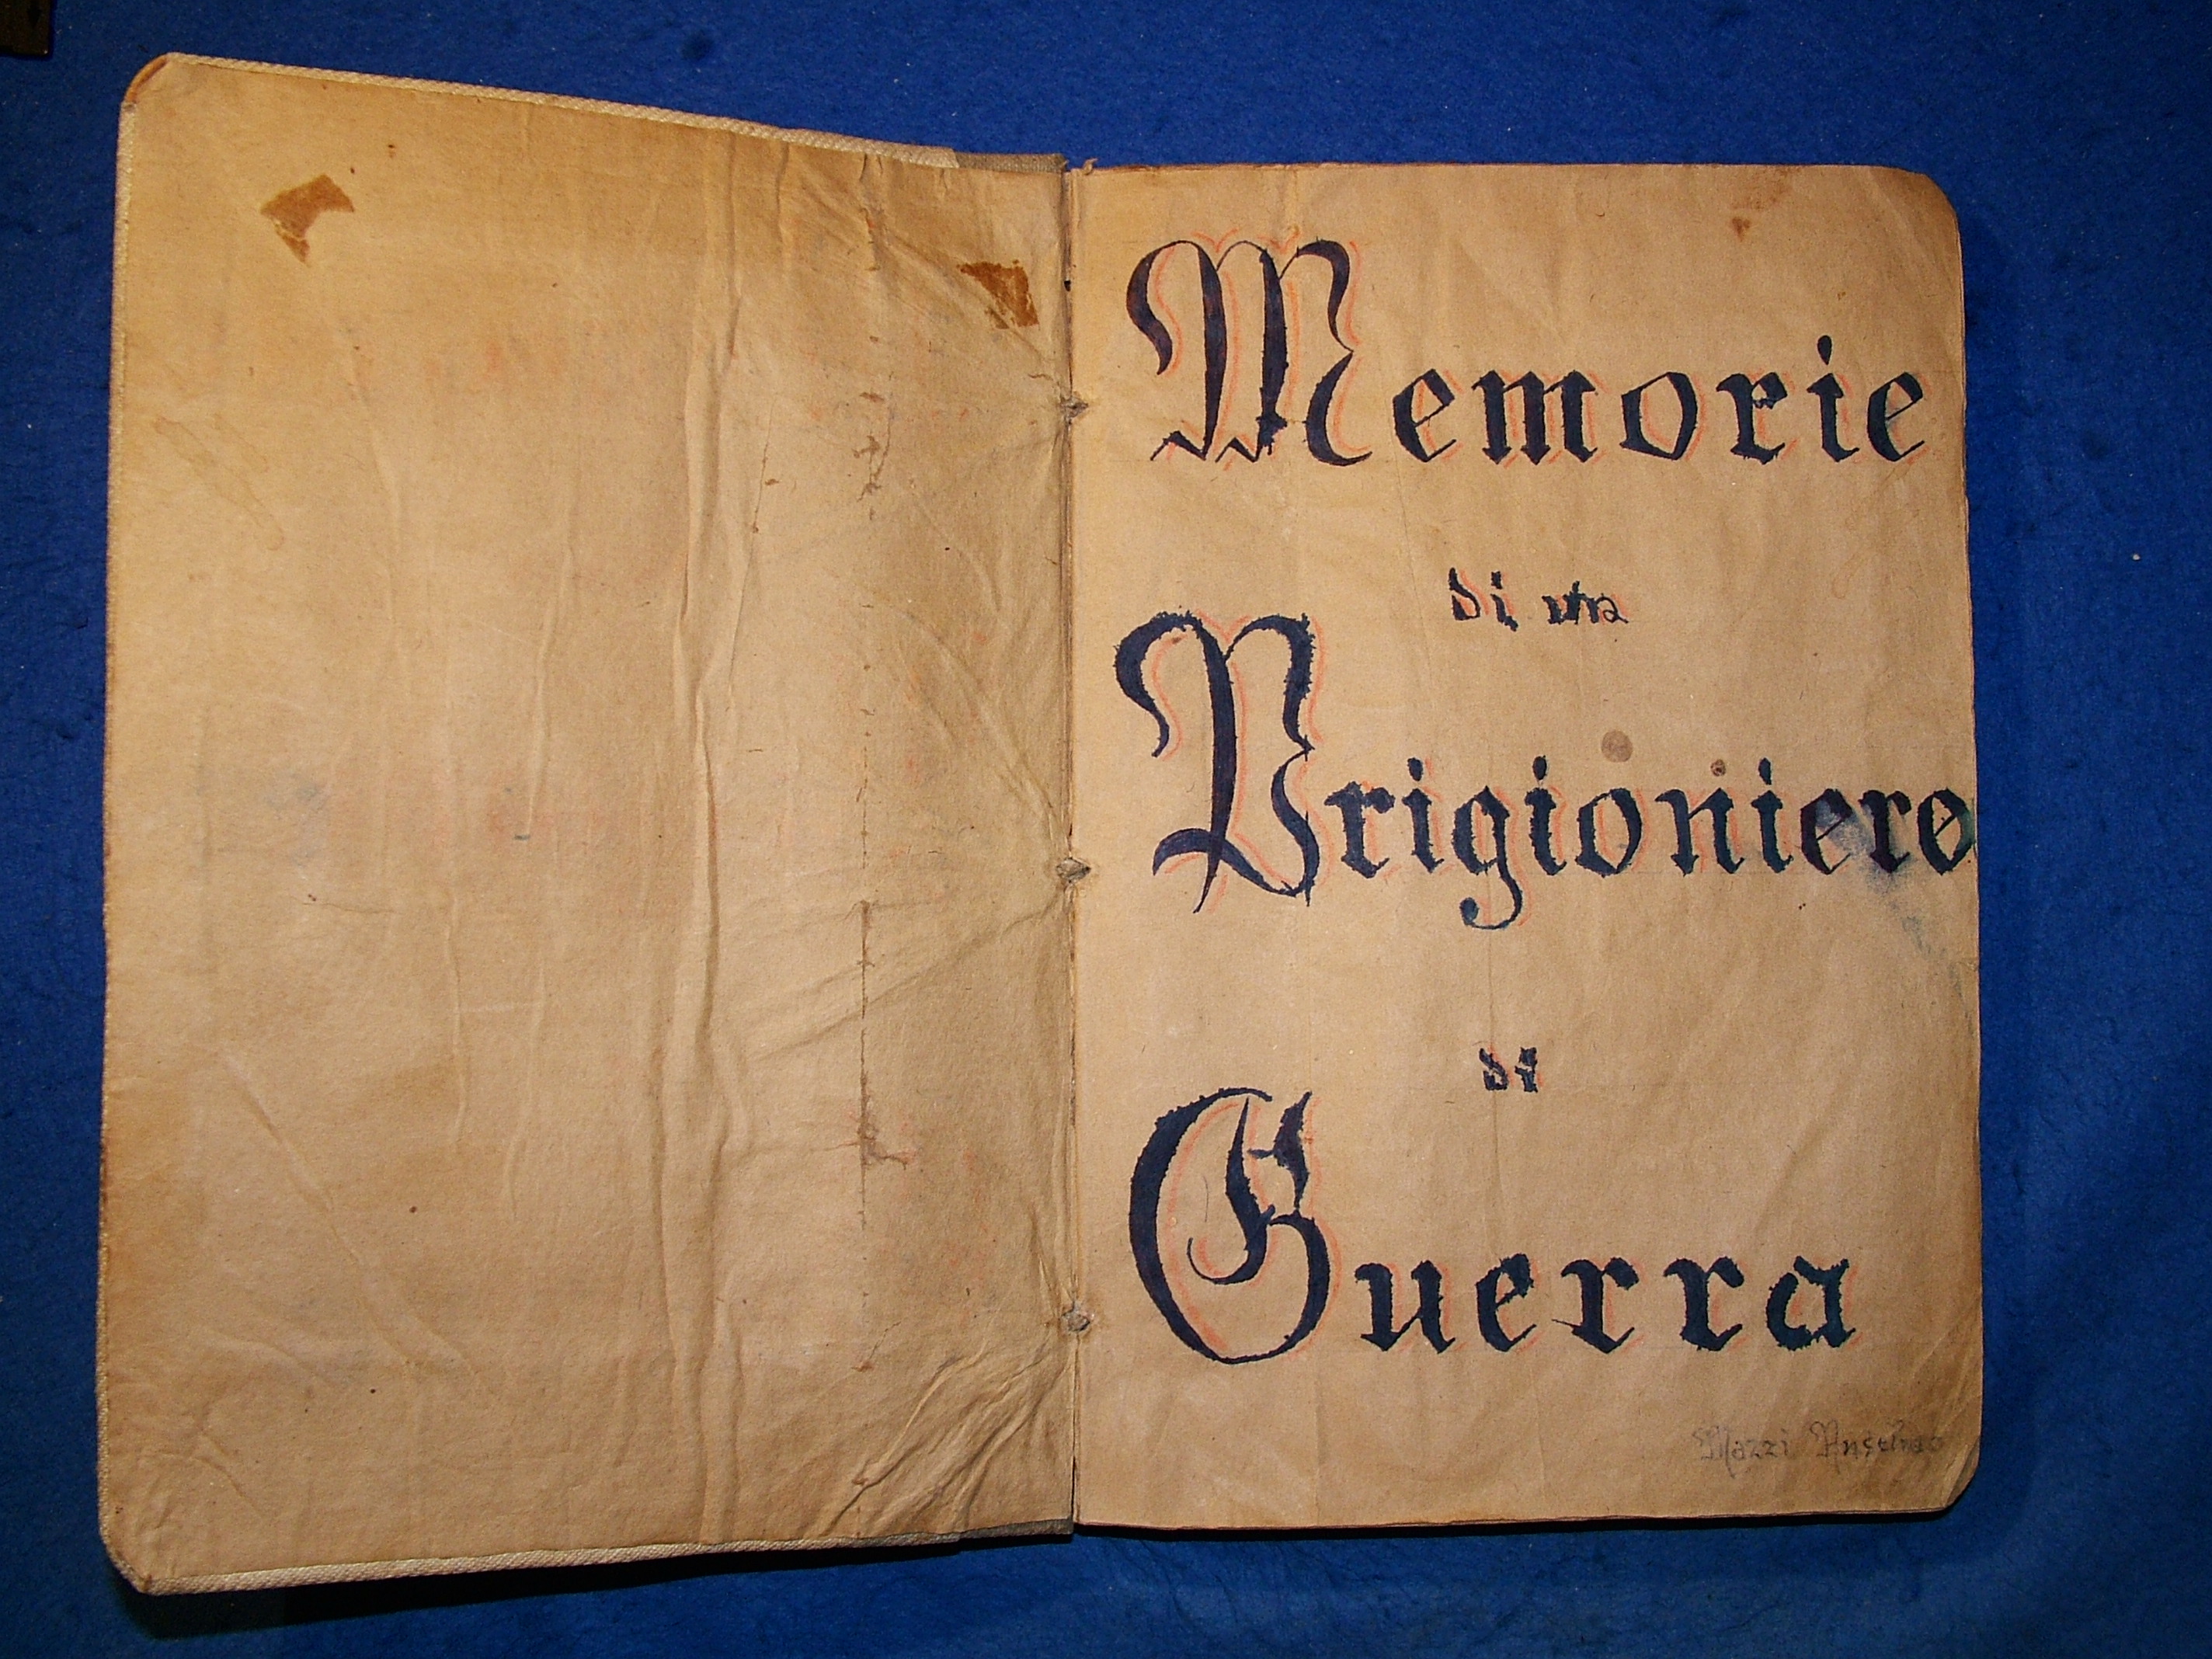 Memorie
di un
Prigioniero
di
Guerra
Mazzi Anselmo